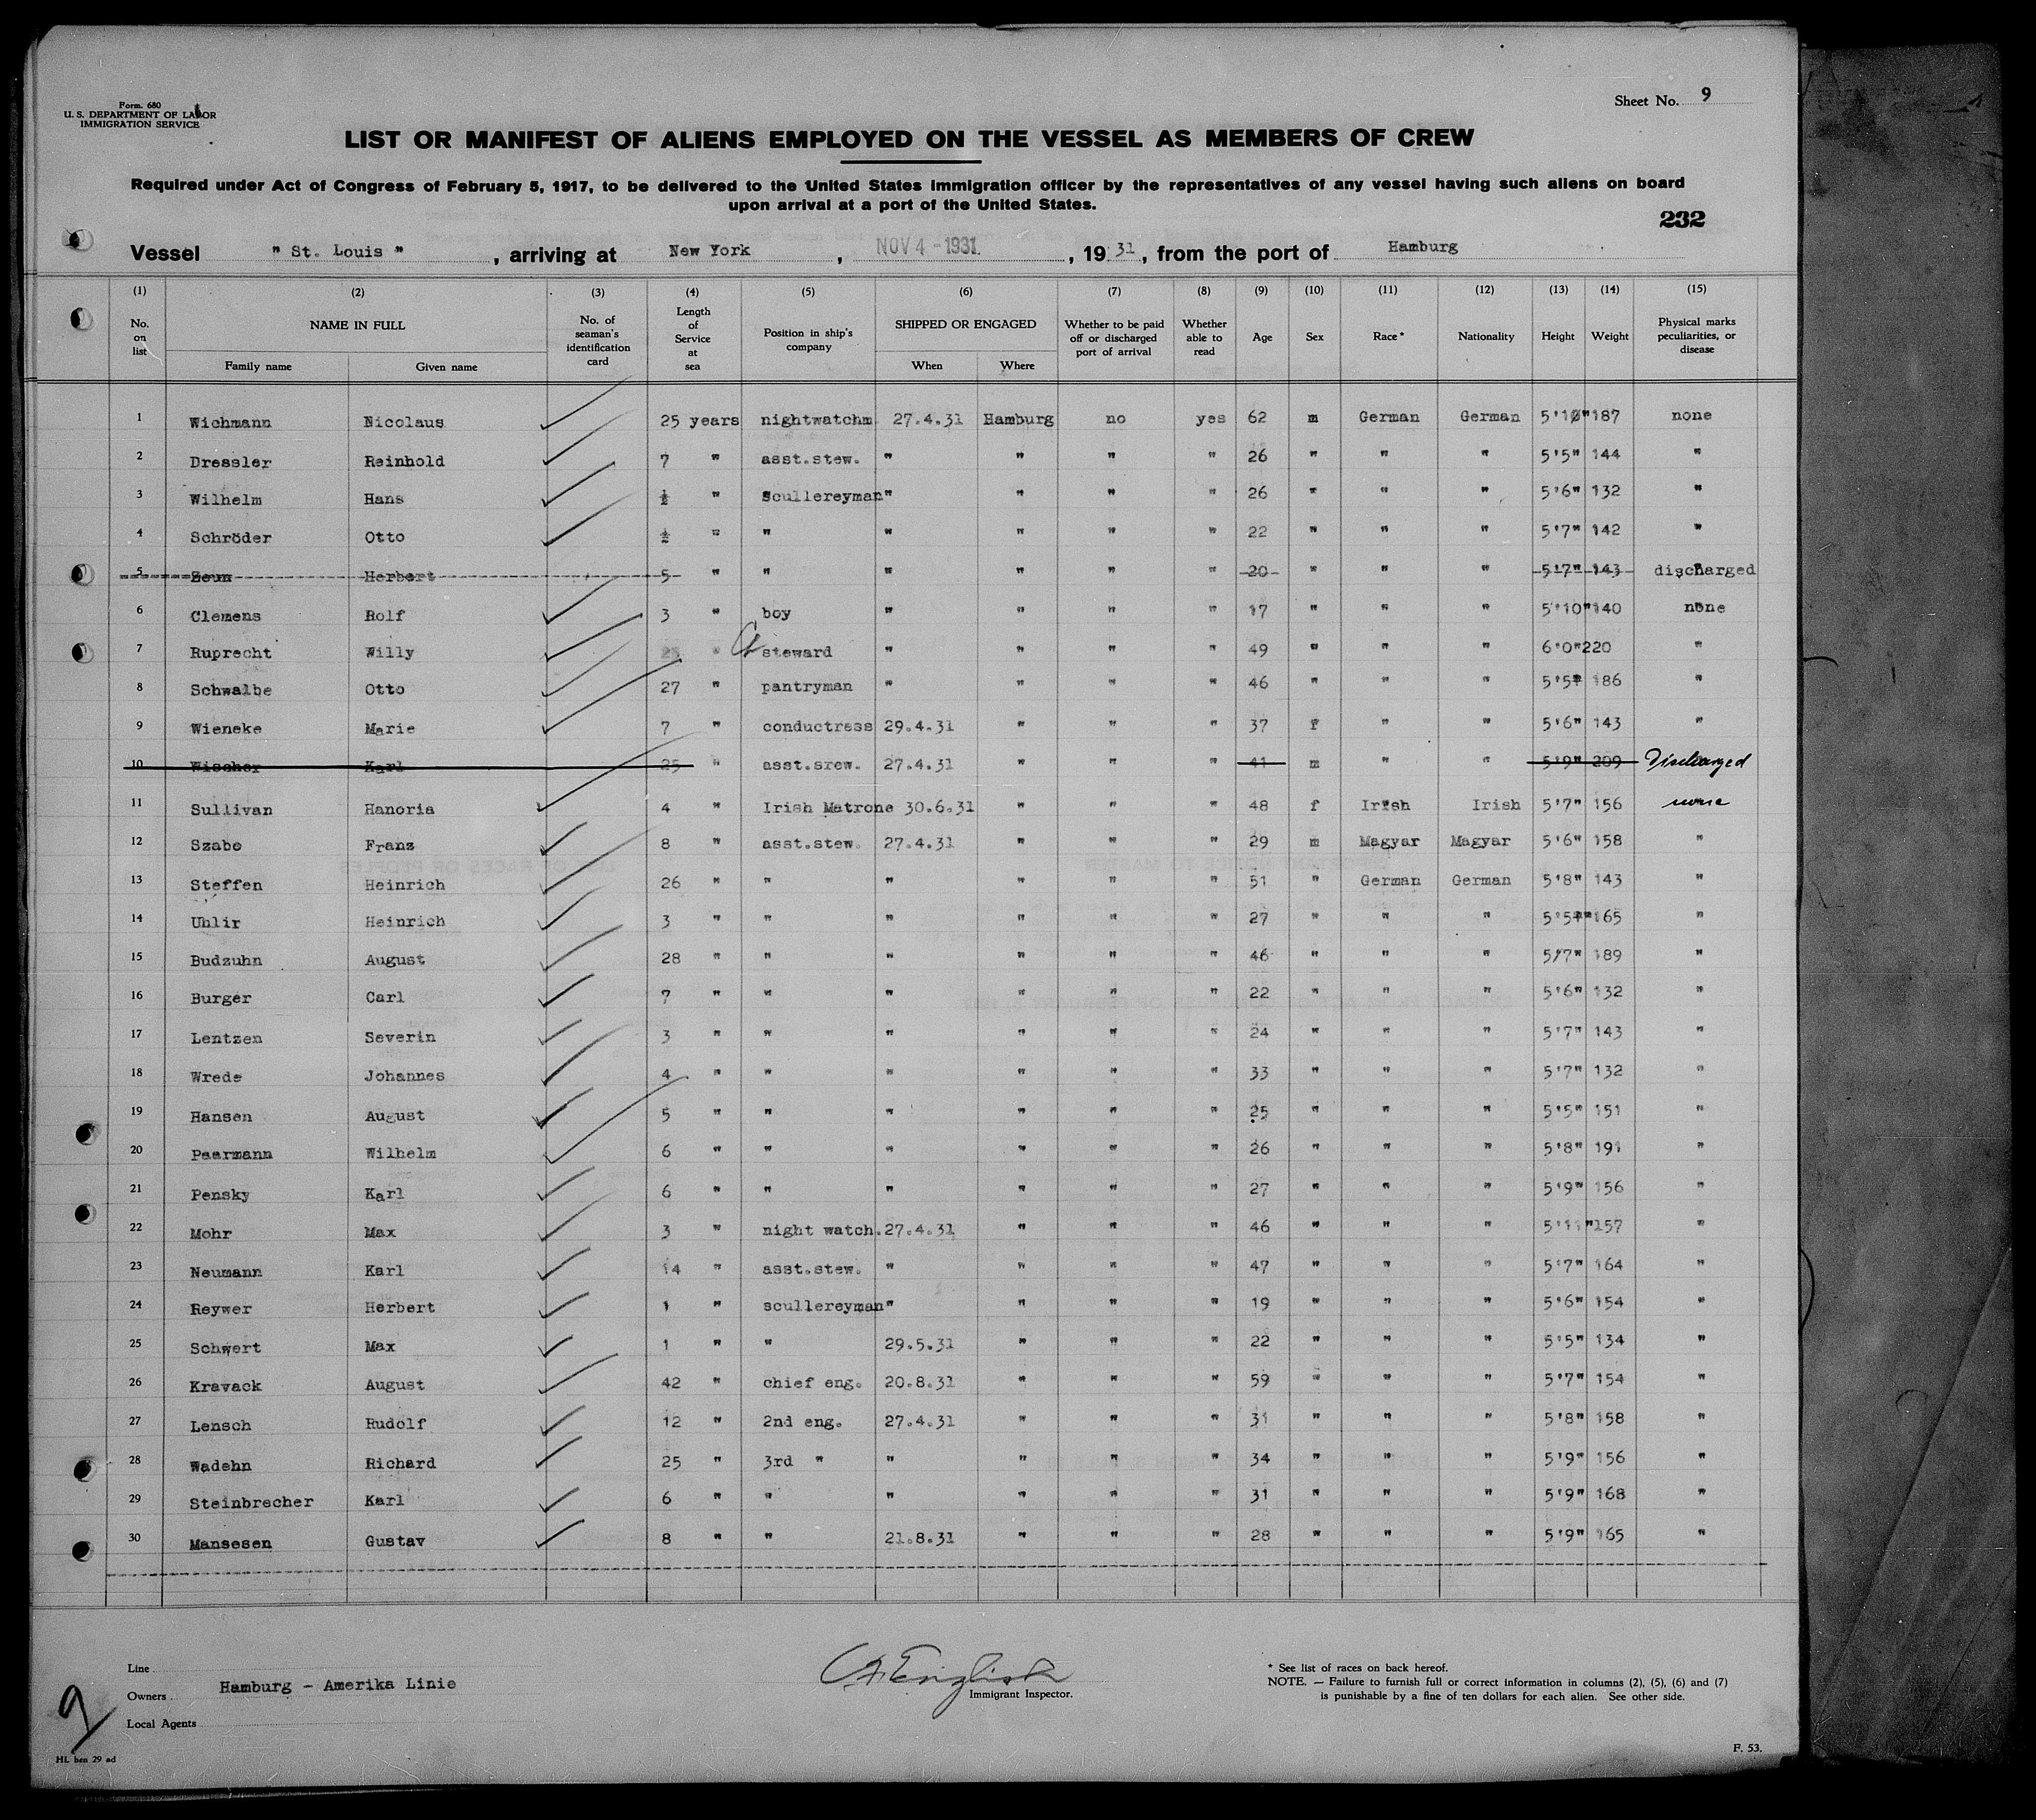 Form. 680
U. S. DEPARTMENT OF LABOR
IMMIGRATION SERVICE
Sheet No. 9
LIST OR MANIFEST OF ALIENS EMPLOYED ON THE VESSEL AS MEMBERS OF CREW
Required under Act of Congress of February 5, 1917, to be delivered to the United States immigration officer by the representatives of any vessel having such aliens on board
upon arrival at a port of the United States.
232
Vessel " St. Louis " , arriving at New York , NOV 4 - 1931 , 19 31 , from the port of Hamburg
(1) (2) (3) (4) (5) (6) (7) (8) (9) (10) (11) (12) (13) (14) (15)
No. on list NAME IN FULL Family name Given name No. of seaman's identification card Length of Service at sea Position in ship's company SHIPPED OR ENGAGED When Where Whether to be paid off or discharged port of arrival Whether able to read Age Sex Race * Nationality Height Weight Physical marks peculiarities, or disease
1 Wichmann Nicolaus 25 years nightwatchm 27.4.31 Hamburg no yes 62 m German German 5'10" 187 none
2 Dressler Reinhold 7 " asst.stew. " " " " 26 " " " 5'5" 144 "
3 Wilhelm Hans ½ " Scullereyman " " " " 26 " " " 5'6" 132 "
4 Schröder Otto ½ " " " " " " 22 " " " 5'7" 142 "
5 Zeun Herbert 5 " " " " " " 20 " " " 5'7" 143 discharged
6 Clemens Rolf 3 " boy " " " " 17 " " " 5'10" 140 none
7 Ruprecht Willy 25 " steward " " " " 49 " " " 6'0" 220 "
8 Schwalbe Otto 27 " pantryman " " " " 46 " " " 5'5" 186 "
9 Wieneke Marie 7 " conductress 29.4.31 " " " 37 f " " 5'6" 143 "
10 Wischer Karl 25 " asst.srew. 27.4.31 " " " 41 m " " 5'9" 209 Discharged
11 Sullivan Hanoria 4 " Irish Matrone 30.6.31 " " " 48 f Irish Irish 5'7" 156 none
12 Szabo Franz 8 " asst.stew. 27.4.31 " " " 29 m Magyar Magyar 5'6" 158 "
13 Steffen Heinrich 26 " " " " " " 51 " German German 5'8" 143 "
14 Uhlir Heinrich 3 " " " " " " 27 " " " 5'5" 165 "
15 Budzuhn August 28 " " " " " " 46 " " " 5'7" 189 "
16 Burger Carl 7 " " " " " " 22 " " " 5'6" 132 "
17 Lentzen Severin 3 " " " " " " 24 " " " 5'7" 143 "
18 Wrede Johannes 4 " " " " " " 33 " " " 5'7" 132 "
19 Hansen August 5 " " " " " " 25 " " " 5'5" 151 "
20 Paarmann Wilhelm 6 " " " " " " 26 " " " 5'8" 191 "
21 Pensky Karl 6 " " " " " " 27 " " " 5'9" 156 "
22 Mohr Max 3 " night watch. 27.4.31 " " " 46 " " " 5'11" 157 "
23 Neumann Karl 14 " asst.stew. " " " " 47 " " " 5'7" 164 "
24 Reywer Herbert 1 " scullereyman " " " " 19 " " " 5'6" 154 "
25 Schwert Max 1 " " 29.5.31 " " " 22 " " " 5'5" 134 "
26 Kravack August 42 " chief eng. 20.8.31 " " " 59 " " " 5'7" 154 "
27 Lensch Rudolf 12 " 2nd eng. 27.4.31 " " " 31 " " " 5'8" 158 "
28 Wadehn Richard 25 " 3rd " " " " " 34 " " " 5'9" 156 "
29 Steinbrecher Karl 6 " " " " " " 31 " " " 5'9" 168 "
30 Mansesen Gustav 8 " " 21.8.31 " " " 28 " " " 5'9" 165 "
Line
Owners Hamburg - Amerika Linie
Local Agents
English
Immigrant Inspector.
* See list of races on back hereof.
NOTE. — Failure to furnish full or correct information in columns (2), (5), (6) and (7)
is punishable by a fine of ten dollars for each alien. See other side.
9
HL hen 29 ad
F. 53.